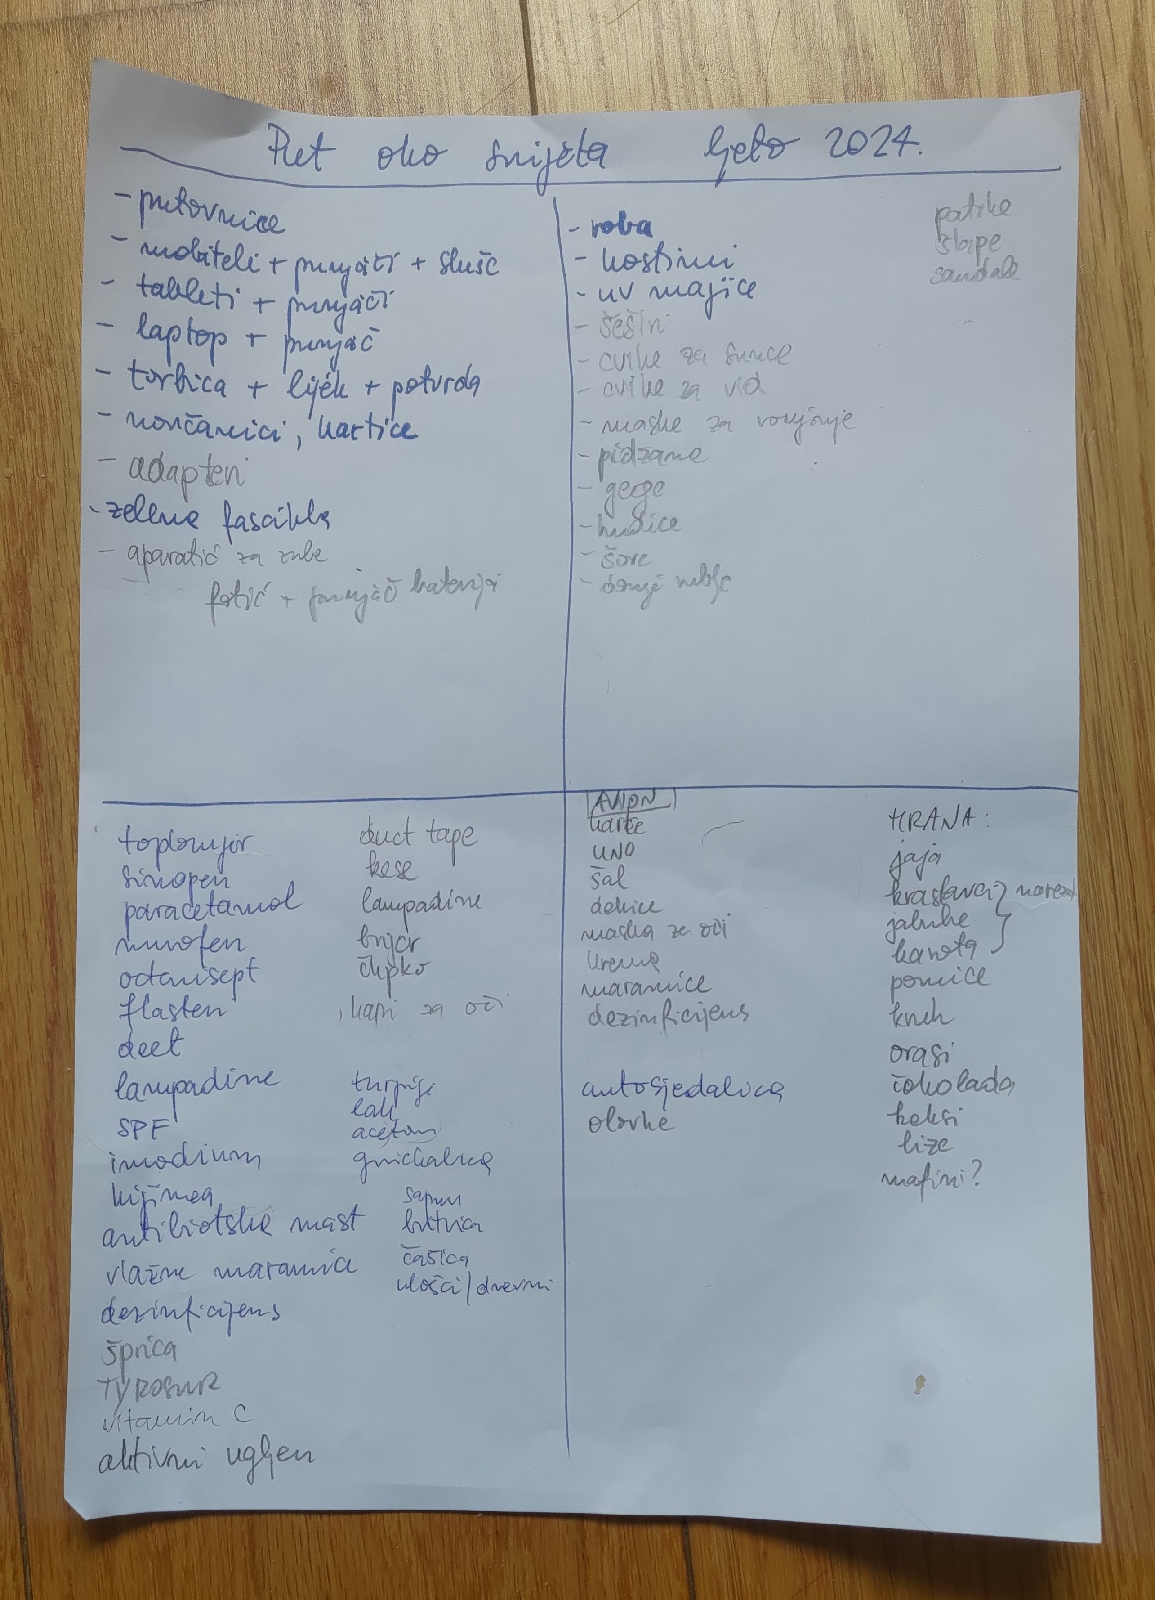 Put oko svijeta ljeto 2024.
- putovnice
- mobiteli + punjači + slušć
- tableti + punjači
- laptop + punjač
- torbica + lijek + potvrda
- novčanici, kartice
- adapteri
- zelena fascikla
- aparatić za zube
fotić + punjač baterija
- roba
- kostimi
- uv majice
- šeširi
- cvike za sunce
- cvike za vid
- maske za ronjenje
- pidžame
- gege
- hudice
- šorc
- donje rublje
patike
šlape
sandale
toplomjer
sinopen
paracetamol
nurofen
octenisept
flasteri
deet
lampadine
SPF
imodium
kijimea
antibiotska mast
vlažne maramice
dezinficijens
šprica
TYROSUR
vitamin C
aktivni ugljen
duct tape
kese
lampadine
brijač
čepko
kapi za oči
turpije
lak
aceton
grickalica
sapun
britvica
čašica
ulošci/dnevni
AVION
karte
UNO
šal
dekice
maska za oči
krema
maramice
dezinficijens
autosjedalica
olovke
HRANA:
jaja
krastavci
jabuke
karota
narezat
pomice
kruh
orasi
čokolada
keksi
lize
mafini?